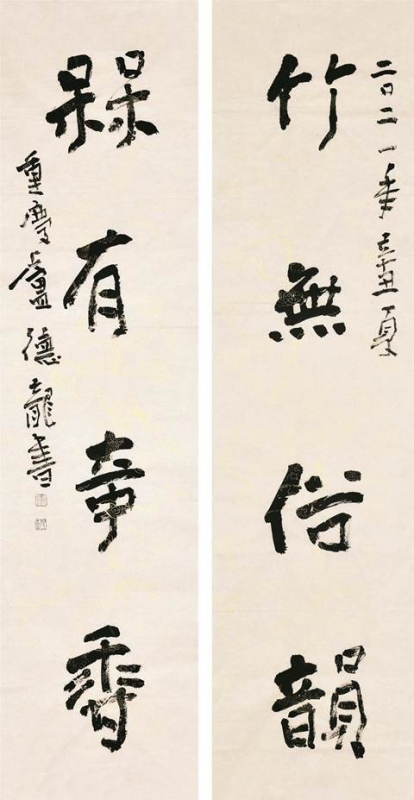 二〇二一年辛丑夏
竹無俗韻
槑有奇香
重慶盧德龍書